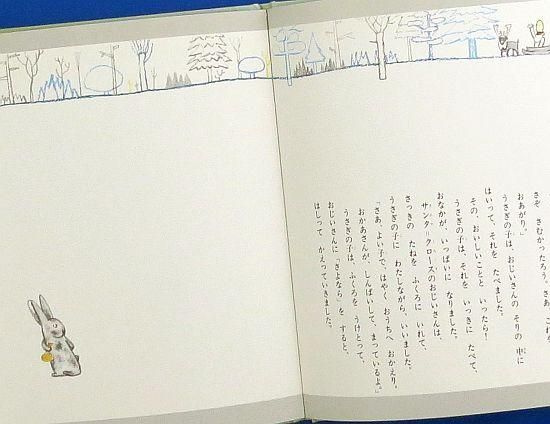 さぞ さむかったろう。さあ、これを
おあがり。」
うさぎの子は、おじいさんの そりの 中に
はいって、それを たべました。
その、おいしいことと いったら!
うさぎの子は、それを いっきに たべて、
おなかが、いっぱいに なりました。
サンタ・クロースのおじいさんは、
さっきの たねを ふくろに いれて、
うさぎの子に わたしながら、いいました。
「さあ、よい子で、はやく おうちへ おかえり。
おかあさんが、しんぱいして、まっているよ。」
うさぎの子は、ふくろを うけとって、
おじいさんに「さよなら」を すると、
はしって かえっていきました。